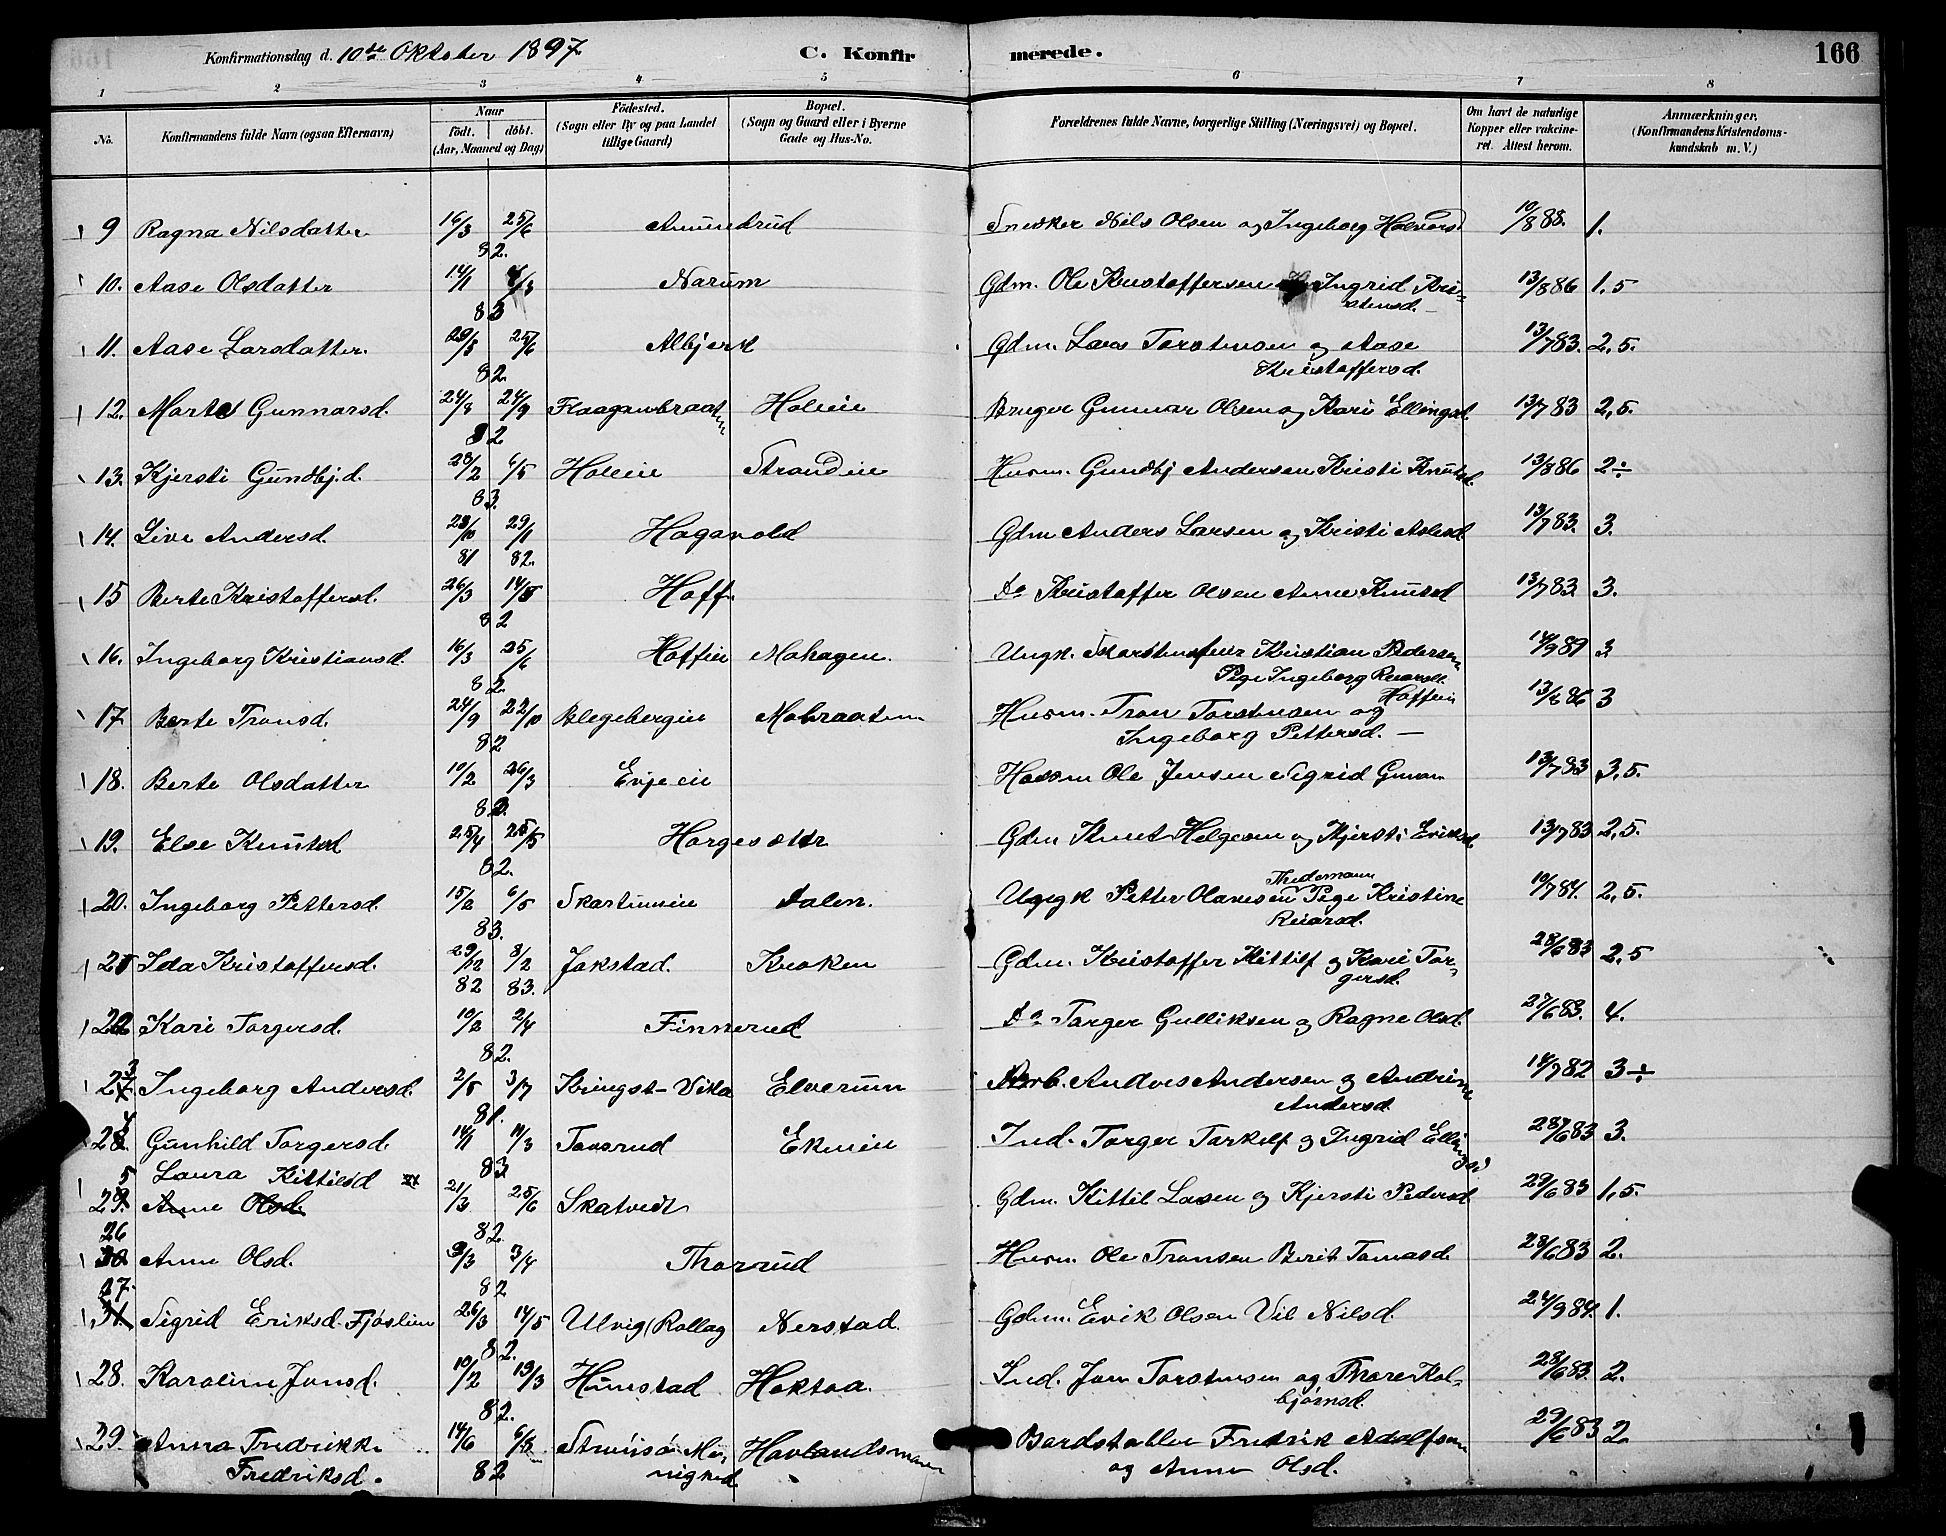 Konfirmationsdag d. 10de Oktober 1897
C. Konfirmerede.
166
1 2 3 4 5 6 7 8
No.
Konfirmandens fulde Navn (ogsaa Efternavn)
Naar
født. døbt.
(Aar, Maaned og Dag)
Fødested.
(Sogn eller By og paa Landet
tillige Gaard)
Bopæl.
(Sogn og Gaard eller i Byerne
Gade og Hus-No.
Forældrenes fulde Navne, borgerlige Stilling (Næringsvei) og Bopæl.
Om havt de naturlige
Kopper eller vakcine-
ret. Attest herom.
Anmærkninger.
(Konfirmandens Kristendoms-
kundskab m. V.)
9 Ragna Nilsdatter 16/3 25/6 82. Amundrud Snedker Nils Olsen og Ingeborg Halvorsd 10/8 88. 1.
10. Aase Olsdatter 14/1 4/3 83 Narum Gdm. Ole Kristoffersen Ingrid Kri-
stensd. 13/8 86 1.5
11. Aase Larsdatter. 29/3 25/6 82. Albjerk Gdm. Lars Torstensen og Aase
Kristoffersd. 13/7 83. 2,5.
12. Marte Gunnarsd. 24/8 24/9 82 Flaaganbraaten Holeie Bruger Gunnar Olsen og Kari Ellingsd. 13/7 83 2,5.
13. Kjersti Gundbj.d. 28/2 6/5 83. Holeie Strandeie Husm. Gundbj Andersen Kristi Knutsd. 13/8 86 2÷
14. Live Andersd. 23/10 81 29/1 82. Haganold Gdm Anders Larsen og Kristi Aslesd 13/7 83. 3.
15 Berte Kristoffersd. 26/3 14/5 82 Hoff. Do Kristoffer Olsen Anne Knutsd 13/7 83. 3.
16. Ingeborg Kristiansd. 16/3 25/6 82. Hoffeie Mohagen. Ungk. Kristian Pedersen
Pige Ingeborg Reiarsd.
Hoffeie 14/9 89 3
17. Berte Tronsd. 24/9 22/10 82 Blegebergeie Mobraaten Husm. Tron Torstensen og
Ingeborg Pettersd. — 13/8 86 3
18. Berte Olsdatter 10/2 26/3 82. Evjeeie Ole Jensen Sigrid 13/7 83 3,5.
19. Else Knutsd 25/4 25/5 82. Horgesætr Gdm Knut Helgesen og Kjersti Eriksd 13/7 83 2,5.
20. Ingeborg Pettersd. 15/2 6/5 83. Skartumeie Dalen. Ungk Petter Olavesen Thidemann Pige Kristine
Reiarsd. 10/7 84. 2,5.
21 Ida Kristoffersd. 29/12 82 8/2 83. Jokstad. Kroken Gdm. Kristoffer Kittilf og Kari Tor-
gersd. 28/6 83 2,5
22 Kari Torgersd. 10/2 2/4 82. Finnerud Do Torger Gulliksen og Ragne Olsd. 27/6 83. 4.
23 Ingeborg Andersd. 2/5 3/7 81. Kringst-Vika Elverum Arb. Andres Andersen og Andrine
Andersd. 14/7 82 3÷
24 Gunhild Torgersd. 14/1 11/3 83. Tovsrud Ekeneie Ind. Torger Torkelf og Ingrid Ellingsd 28/6 83 3.
25 Laura Kittilsd Anne Olsd. 21/3 25/6 82. Skatvedt Gdm. Kittil Lasen og Kjersti Pedersd 29/6 83 1,5.
26 Anne Olsd. 3/3 3/4 82 Thorrud Husm. Ole Tronsen Berit Tomasd. 28/6 83 2.
27. Sigrid Eriksd. Fjøslien 26/3 14/5 82. Ulvig (Rollag Nerstad. Gdm. Erik Olsen Vil Nilsd. 24/9 84. 1.
28. Karoline Jonsd. 10/2 19/3 82. Hunstad Hoktoa. Ind. Jon Torstensen og Thore Kol-
bjørnsd. 28/6 83. 2.
29. Anna Fredrikke
Fredriksd. 14/6 6/8 82 Strømsø Me-
nighed Hovlandsmoen Bordstabler Fredrik Adolfsen
og Anne Olsd. 29/6 83 2